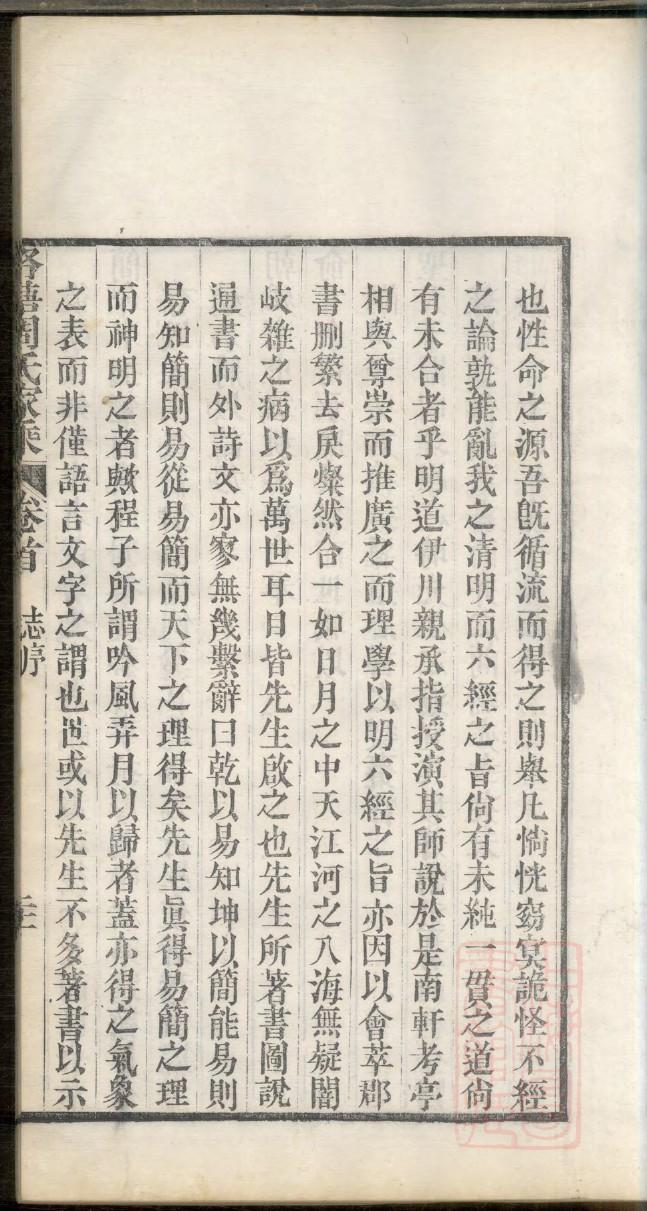 也性命之源吾旣循流而得之則舉凡惝恍窈冥詭怪不經
之論孰能亂我之清明而六經之旨尙有未純一貫之道尙
有未合者乎明道伊川親承指授演其師說於是南軒考亭
相與尊崇而推廣之而理學以明六經之旨亦因以會萃郡
書刪繁去戾燦然合一如日月之中天江河之入海無疑闇
岐雜之病以爲萬世耳目皆先生啟之也先生所著書圖說
通書而外詩文亦寥無幾繫辭曰乾以易知坤以簡能易則
易知簡則易從易簡而天下之理得矣先生眞得易簡之理
而神明之者歟程子所謂吟風弄月以歸者蓋亦得之氣象
之表而非僅語言文字之謂也世或以先生不多著書以示
周氏家乘 卷首 誌序